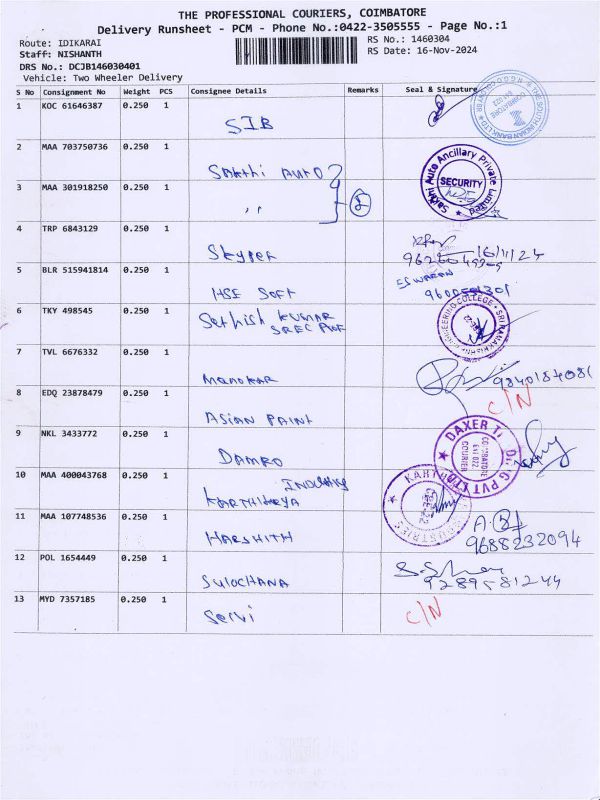 THE PROFESSIONAL COURIERS, COIMBATORE
Delivery Runsheet - PCM - Phone No.:0422-3505555 - Page No.:1
Route: IDIKARAI
RS No.: 1460304
Staff: NISHANTH
RS Date: 16-Nov-2024
DRS No.: DCJB146030401
Vehicle: Two Wheeler Delivery
S No Consignment No Weight PCS Consignee Details Remarks Seal & Signature
1 KOC 61646387 0.250 1
SIB
THE SOUTH INDIAN BANK LTD
COIMBATORE
2 MAA 703750736 0.250 1
Sakthi AUTO
Sakthi Auto Ancillary Private Limited
SECURITY
3 MAA 301918250 0.250 1
,, 2
4 TRP 6843129 0.250 1
Skyper
16/11/24
5 BLR 515941814 0.250 1
HSE SOFT
ESWARAN
6 TKY 498545 0.250 1
Sathish KUMAR
SREC
ENGINEERING COLLEGE
7 TVL 6676332 0.250 1
Manokar
9840184081
8 EDQ 23878479 0.250 1
ASIAN PAINT
C/N
9 NKL 3433772 0.250 1
DAMRO
10 MAA 400043768 0.250 1
KARTHIKEYA
11 MAA 107748536 0.250 1
HARSHITH
9688232094
12 POL 1654449 0.250 1
SULOCHANA
13 MYD 7357185 0.250 1
Selvi
C/N